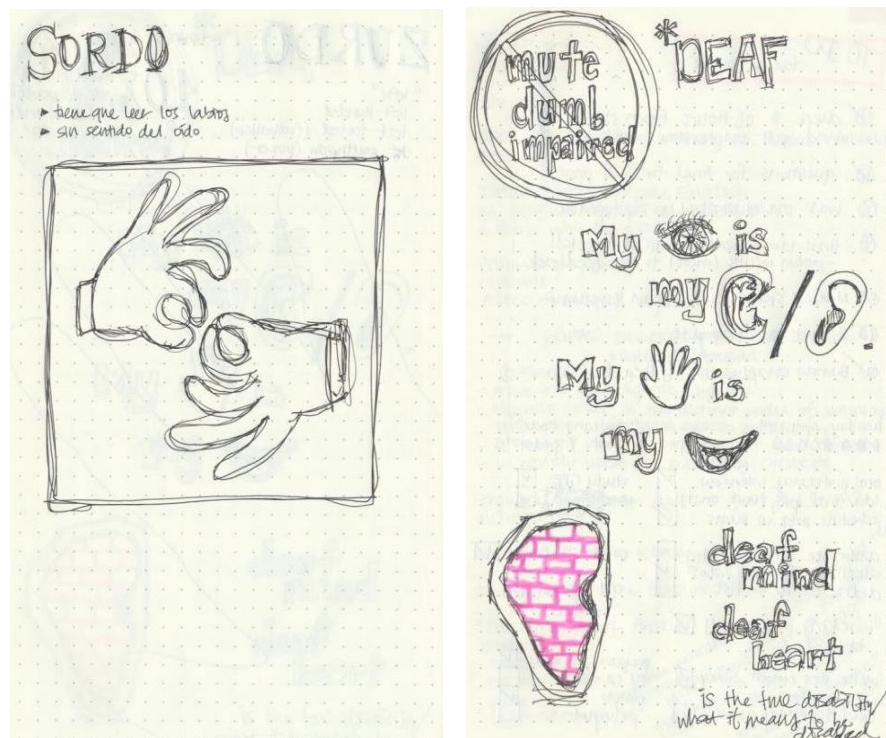 SORDO
▸ tiene que leer los labios
▸ sin sentido del oído
mute
dumb
impaired
*DEAF
My is
my /
My is
my
deaf
mind
deaf
heart
is the true disability/
what it means to be
disabled